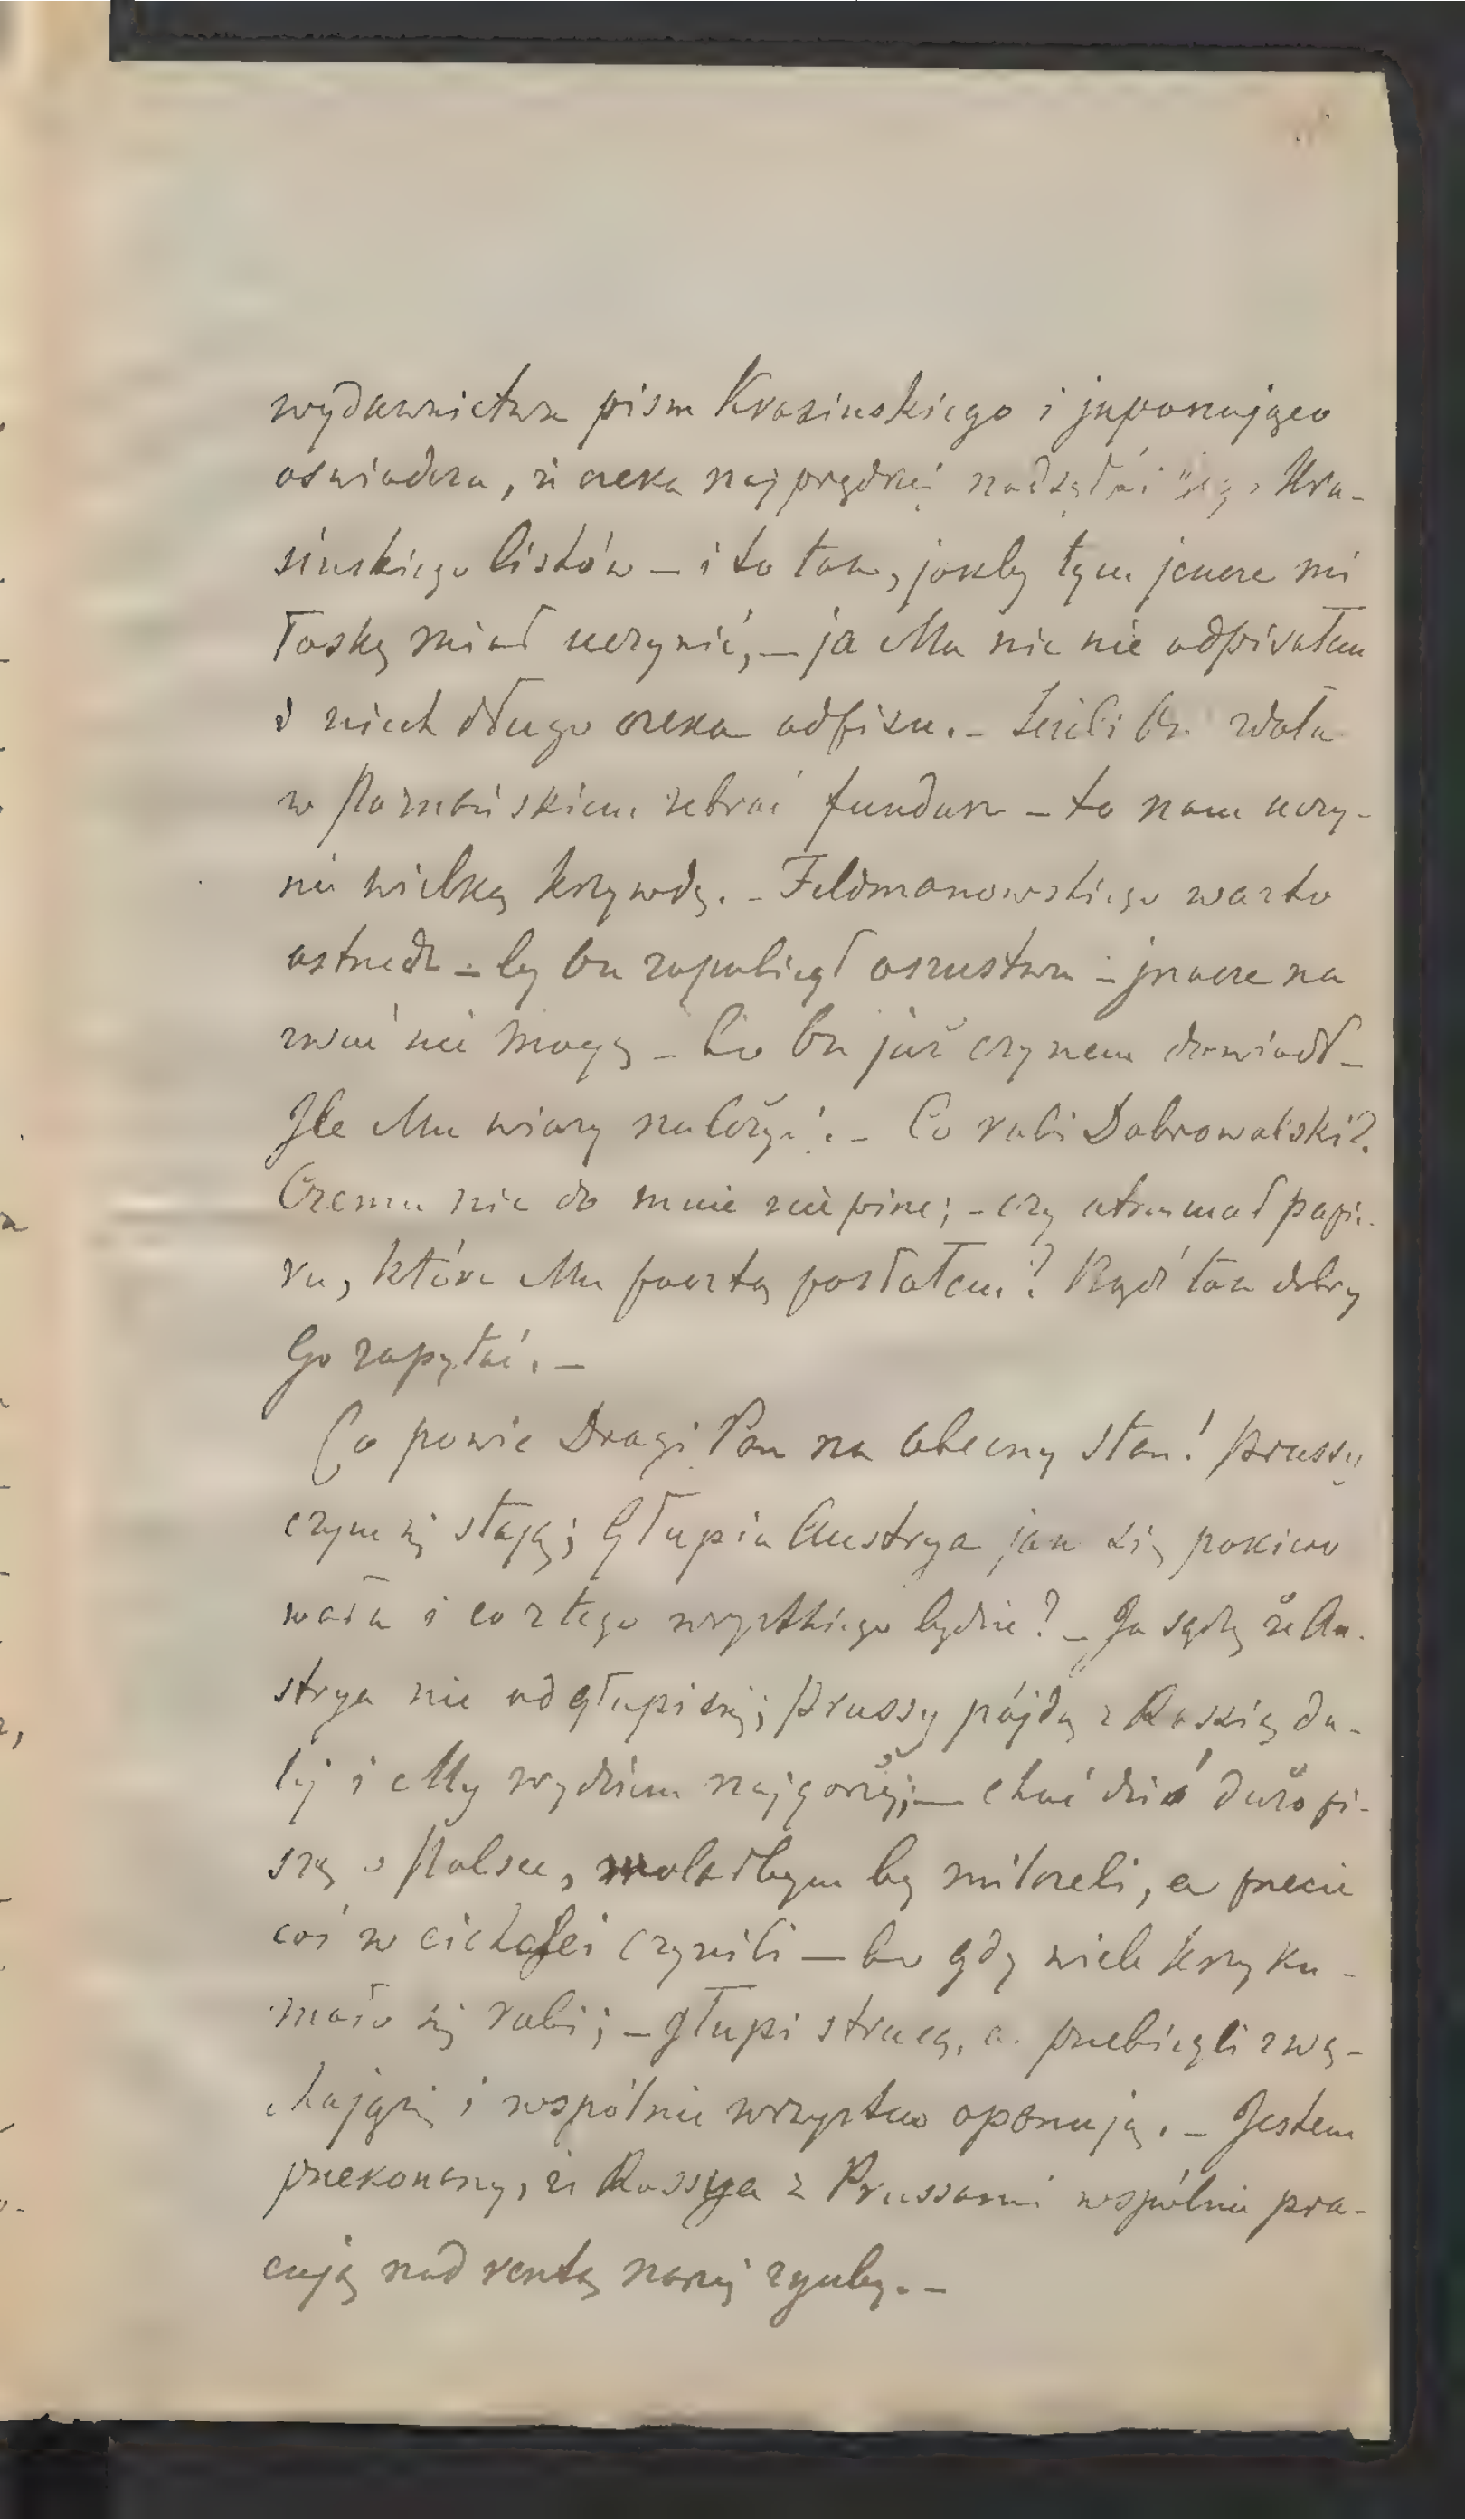 wydawnictwa pism Krasinskiego i imponująco
oświadcza, iż czeka najprędzéj Kra-
sinskiego listów – i to tak, jakby tym jeszcze mi
łaskę miał uczynić, – ja Mu nic nie odpisałem
i niech długo czeka odpisu. – Jeżeli On zdoła
w Poznańskiem zebrać fundusz – to nam uczy-
ni wielką krzywdę. – Feldmanowskiego warto
ostrzedz – by On zapobiegł oszustwu – inaczej na
zwać nie mogę – bo On już czynem dowiódł –
Ile Mu wiary należy! – Co robi Dobrowolski?
Czemu nic do mnie nie pisze; – czy otrzymał papie-
ru, które Mu pocztą posłałem? Bądź tak dobry
Go zapytać. –
Co powie Drogi Pan na obecny stan! Prussy
czym się stają; Głupia Austrya jak się pokiero
wała i co z tego wszystkiego będzie? – Ja sądzę że Au-
strya nie odgłupieje; Prussy pójdą z Rossią da-
léj i My wyjdziem najgorzéj; – choć dziś dużo pi-
szą o Polsce, wolałbym by milczeli, a przecie
coś w cichości czynili – bo gdy wiele krzyku –
mało się robi; – głupi stracą, a przebiegli zwą-
chają się i wspólnie wszystko opanują. – Jestem
przekonany, iż Rossya z Prussami wspólnie pra-
cują nad resztą naszéj zguby. –